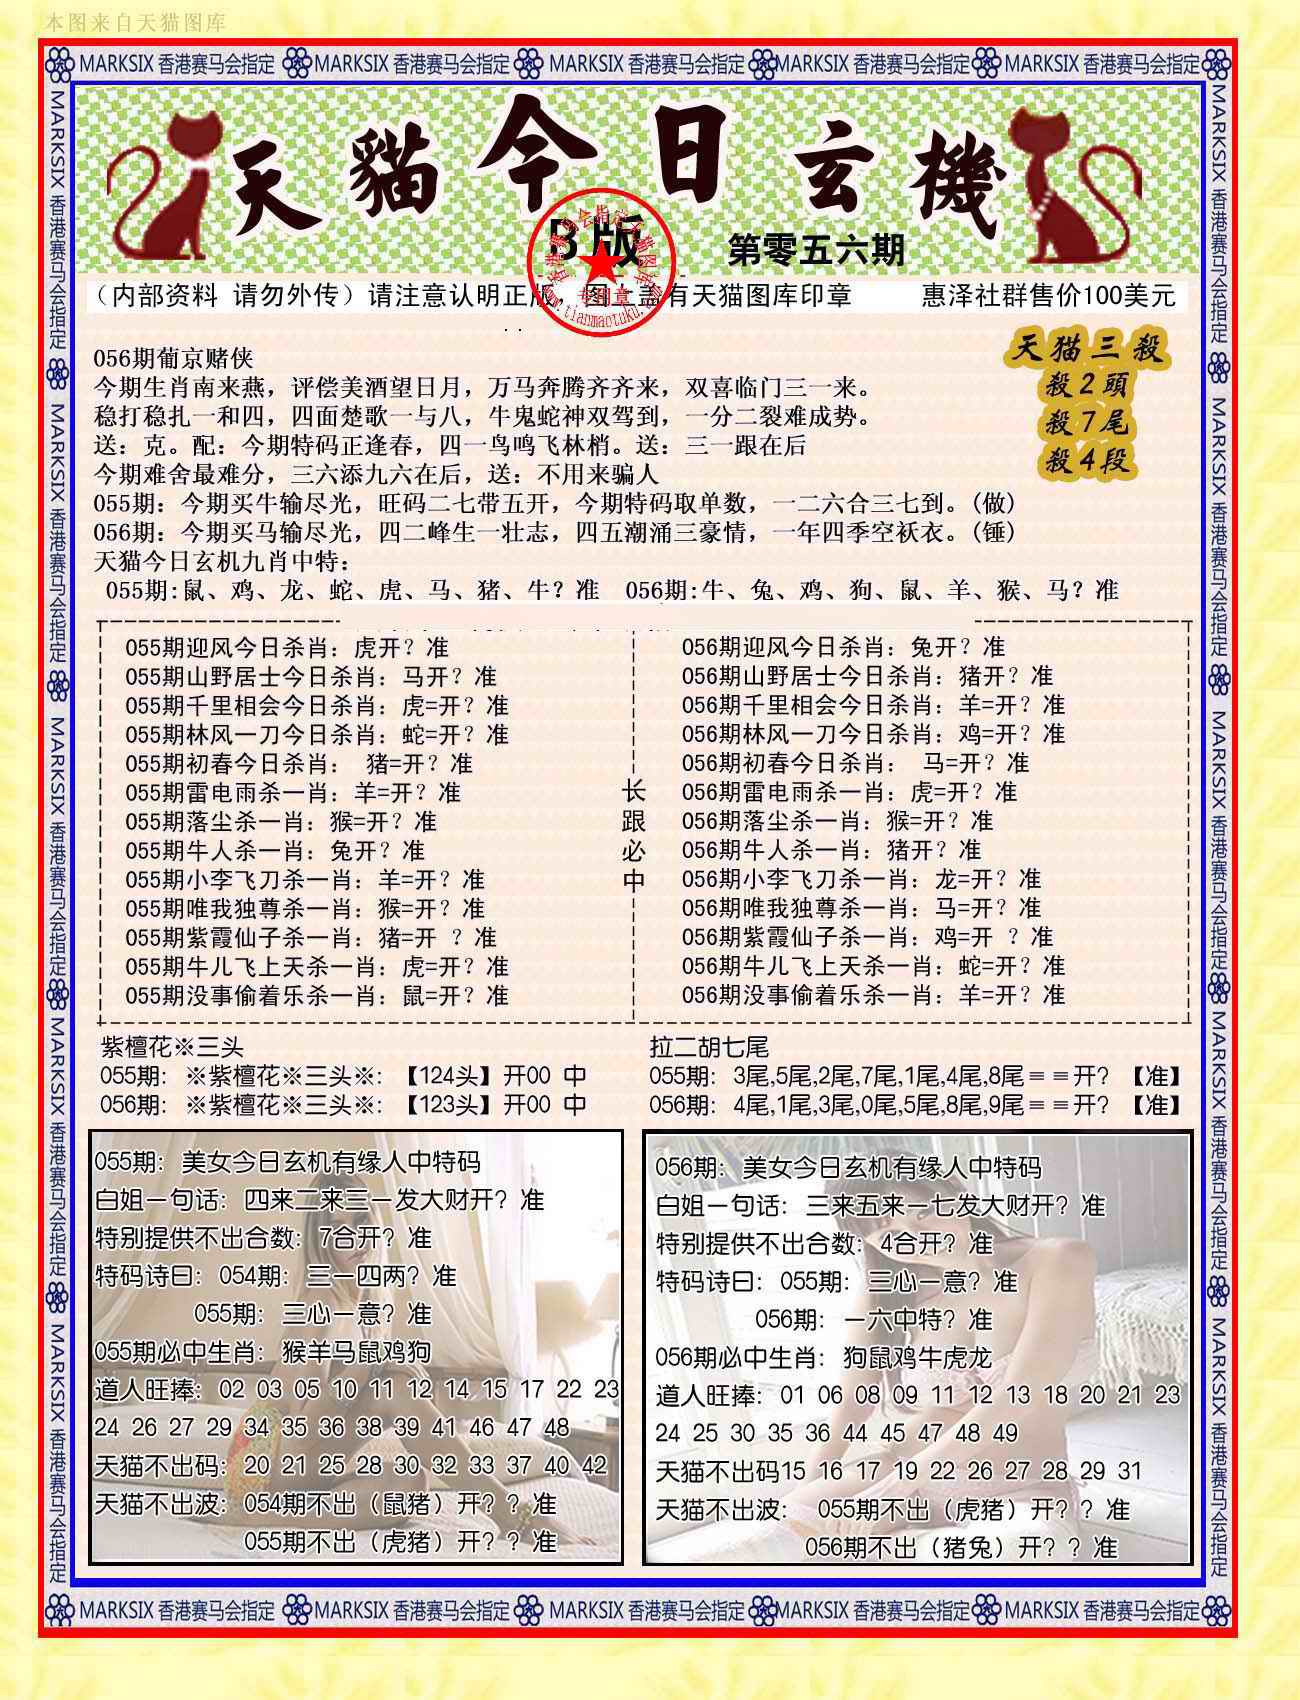 本图来自天猫图库
MARKSIX 香港赛马会指定 MARKSIX 香港赛马会指定 MARKSIX 香港赛马会指定 MARKSIX 香港赛马会指定 MARKSIX 香港赛马会指定
天貓今日玄機
B版
第零五六期
专用章
www.tianmaotuku.com
（内部资料 请勿外传）请注意认明正版，图上盖有天猫图库印章 惠泽社群售价100美元
天猫三殺
殺2頭
殺7尾
殺4段
056期葡京赌侠
今期生肖南来燕，评偿美酒望日月，万马奔腾齐齐来，双喜临门三一来。
稳打稳扎一和四，四面楚歌一与八，牛鬼蛇神双驾到，一分二裂难成势。
送：克。配：今期特码正逢春，四一鸟鸣飞林梢。送：三一跟在后
今期难舍最难分，三六添九六在后，送：不用来骗人
055期：今期买牛输尽光，旺码二七带五开，今期特码取单数，一二六合三七到。(做)
056期：今期买马输尽光，四二峰生一壮志，四五潮涌三豪情，一年四季空袄衣。(锤)
天猫今日玄机九肖中特：
055期:鼠、鸡、龙、蛇、虎、马、猪、牛？准 056期:牛、兔、鸡、狗、鼠、羊、猴、马？准
055期迎风今日杀肖：虎开？准
055期山野居士今日杀肖：马开？准
055期千里相会今日杀肖：虎=开？准
055期林风一刀今日杀肖：蛇=开？准
055期初春今日杀肖： 猪=开？准
055期雷电雨杀一肖：羊=开？准
055期落尘杀一肖：猴=开？准
055期牛人杀一肖：兔开？准
055期小李飞刀杀一肖：羊=开？准
055期唯我独尊杀一肖：猴=开？准
055期紫霞仙子杀一肖：猪=开 ？准
055期牛儿飞上天杀一肖：虎=开？准
055期没事偷着乐杀一肖：鼠=开？准
长跟必中
056期迎风今日杀肖：兔开？准
056期山野居士今日杀肖：猪开？准
056期千里相会今日杀肖：羊=开？准
056期林风一刀今日杀肖：鸡=开？准
056期初春今日杀肖： 马=开？准
056期雷电雨杀一肖：虎=开？准
056期落尘杀一肖：猴=开？准
056期牛人杀一肖：猪开？准
056期小李飞刀杀一肖：龙=开？准
056期唯我独尊杀一肖：马=开？准
056期紫霞仙子杀一肖：鸡=开 ？准
056期牛儿飞上天杀一肖：蛇=开？准
056期没事偷着乐杀一肖：羊=开？准
紫檀花※三头
055期：※紫檀花※三头※：【124头】开00 中
056期：※紫檀花※三头※：【123头】开00 中
拉二胡七尾
055期：3尾,5尾,2尾,7尾,1尾,4尾,8尾＝＝开？【准】
056期：4尾,1尾,3尾,0尾,5尾,8尾,9尾＝＝开？【准】
055期：美女今日玄机有缘人中特码
白姐一句话：四来二来三一发大财开？准
特别提供不出合数：7合开？准
特码诗曰：054期：三一四两？准
055期：三心一意？准
055期必中生肖：猴羊马鼠鸡狗
道人旺捧：02 03 05 10 11 12 14 15 17 22 23
24 26 27 29 34 35 36 38 39 41 46 47 48
天猫不出码：20 21 25 28 30 32 33 37 40 42
天猫不出波：054期不出（鼠猪）开？？准
055期不出（虎猪）开？？准
056期：美女今日玄机有缘人中特码
白姐一句话：三来五来一七发大财开？准
特别提供不出合数：4合开？准
特码诗曰：055期：三心一意？准
056期：一六中特？准
056期必中生肖：狗鼠鸡牛虎龙
道人旺捧：01 06 08 09 11 12 13 18 20 21 23
24 25 30 35 36 44 45 47 48 49
天猫不出码15 16 17 19 22 26 27 28 29 31
天猫不出波： 055期不出（虎猪）开？？准
056期不出（猪兔）开？？准
MARKSIX 香港赛马会指定 MARKSIX 香港赛马会指定 MARKSIX 香港赛马会指定 MARKSIX 香港赛马会指定 MARKSIX 香港赛马会指定
MARKSIX 香港赛马会指定 MARKSIX 香港赛马会指定 MARKSIX 香港赛马会指定 MARKSIX 香港赛马会指定 MARKSIX 香港赛马会指定
MARKSIX 香港赛马会指定 MARKSIX 香港赛马会指定 MARKSIX 香港赛马会指定 MARKSIX 香港赛马会指定 MARKSIX 香港赛马会指定